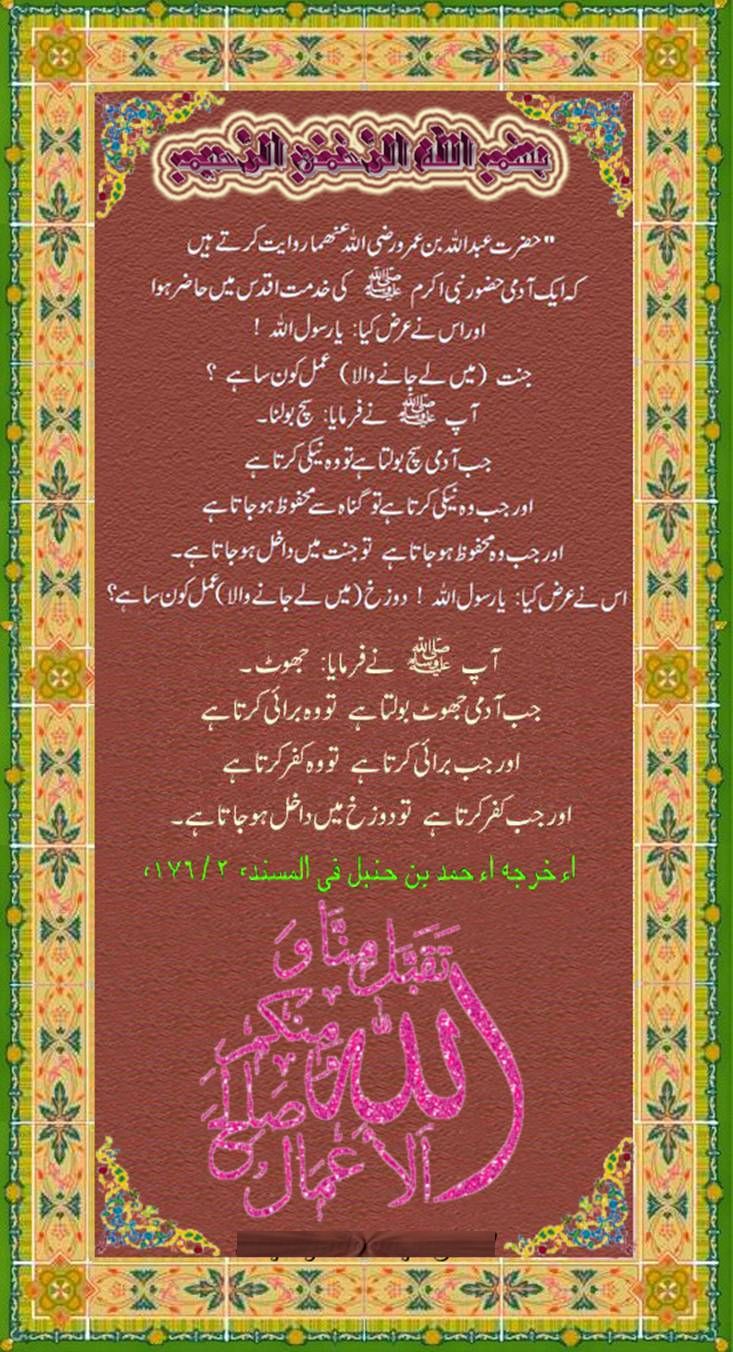 بسم الله الرحمن الرحيم
"حضرت عبد اللہ بن عمرو رضی اللہ عنھما روایت کرتے ہیں
کہ ایک آدمی حضور نبی اکرم ﷺ کی خدمت اقدس میں حاضر ہوا
اور اس نے عرض کیا: یا رسول اللہ !
جنت (میں لے جانے والا) عمل کون سا ہے ؟
آپ ﷺ نے فرمایا: سچ بولنا۔
جب آدمی سچ بولتا ہے تو وہ نیکی کرتا ہے
اور جب وہ نیکی کرتا ہے تو گناہ سے محفوظ ہو جاتا ہے
اور جب وہ محفوظ ہو جاتا ہے تو جنت میں داخل ہو جاتا ہے۔
اس نے عرض کیا: یا رسول اللہ ! دوزخ (میں لے جانے والا) عمل کون سا ہے؟
آپ ﷺ نے فرمایا: جھوٹ۔
جب آدمی جھوٹ بولتا ہے تو وہ برائی کرتا ہے
اور جب برائی کرتا ہے تو وہ کفر کرتا ہے
اور جب کفر کرتا ہے تو دوزخ میں داخل ہو جاتا ہے۔
اٴخرجه اٴحمد بن حنبل فى المسند، ٢ / ١٧٦،
تَقَبَّلَ الله مِنَّا وَ
وَ مِنكُم
صَالِحَ الأَعمَال